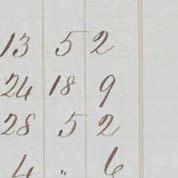 13 5 2
24 18 9
28 5 2
4 " 6